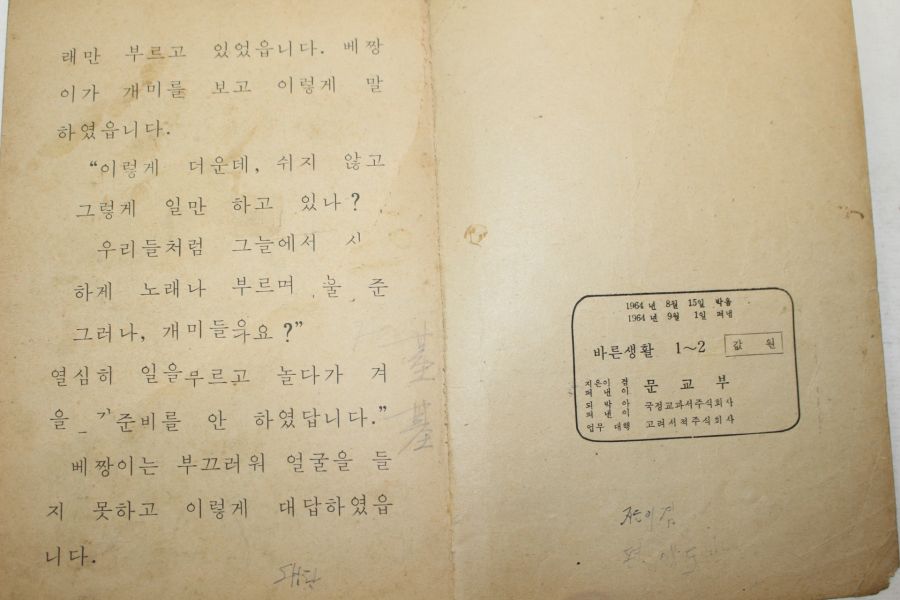 래만 부르고 있었읍니다. 베짱
이가 개미를 보고 이렇게 말
하였읍니다.
“이렇게 더운데, 쉬지 않고
그렇게 일만 하고 있나?
우리들처럼 그늘에서 시
하게 노래나 부르며 준
그러나, 개미들 요?”
열심히 일을 부르고 놀다가 겨
을 준비를 안 하였답니다.”
베짱이는 부끄러워 얼굴을 들
지 못하고 이렇게 대답하였읍
니다.
대단
基
基
1964년 8월 15일 박음
1964년 9월 1일 펴냄
바른생활 1~2
값 원
지은이 겸
펴낸이
문교부
되박아
펴낸이
국정교과서주식회사
업무 대행 고려서적주식회사
지은이겸